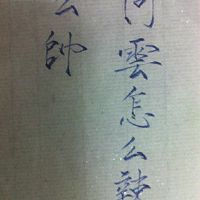 雲怎么
么帥